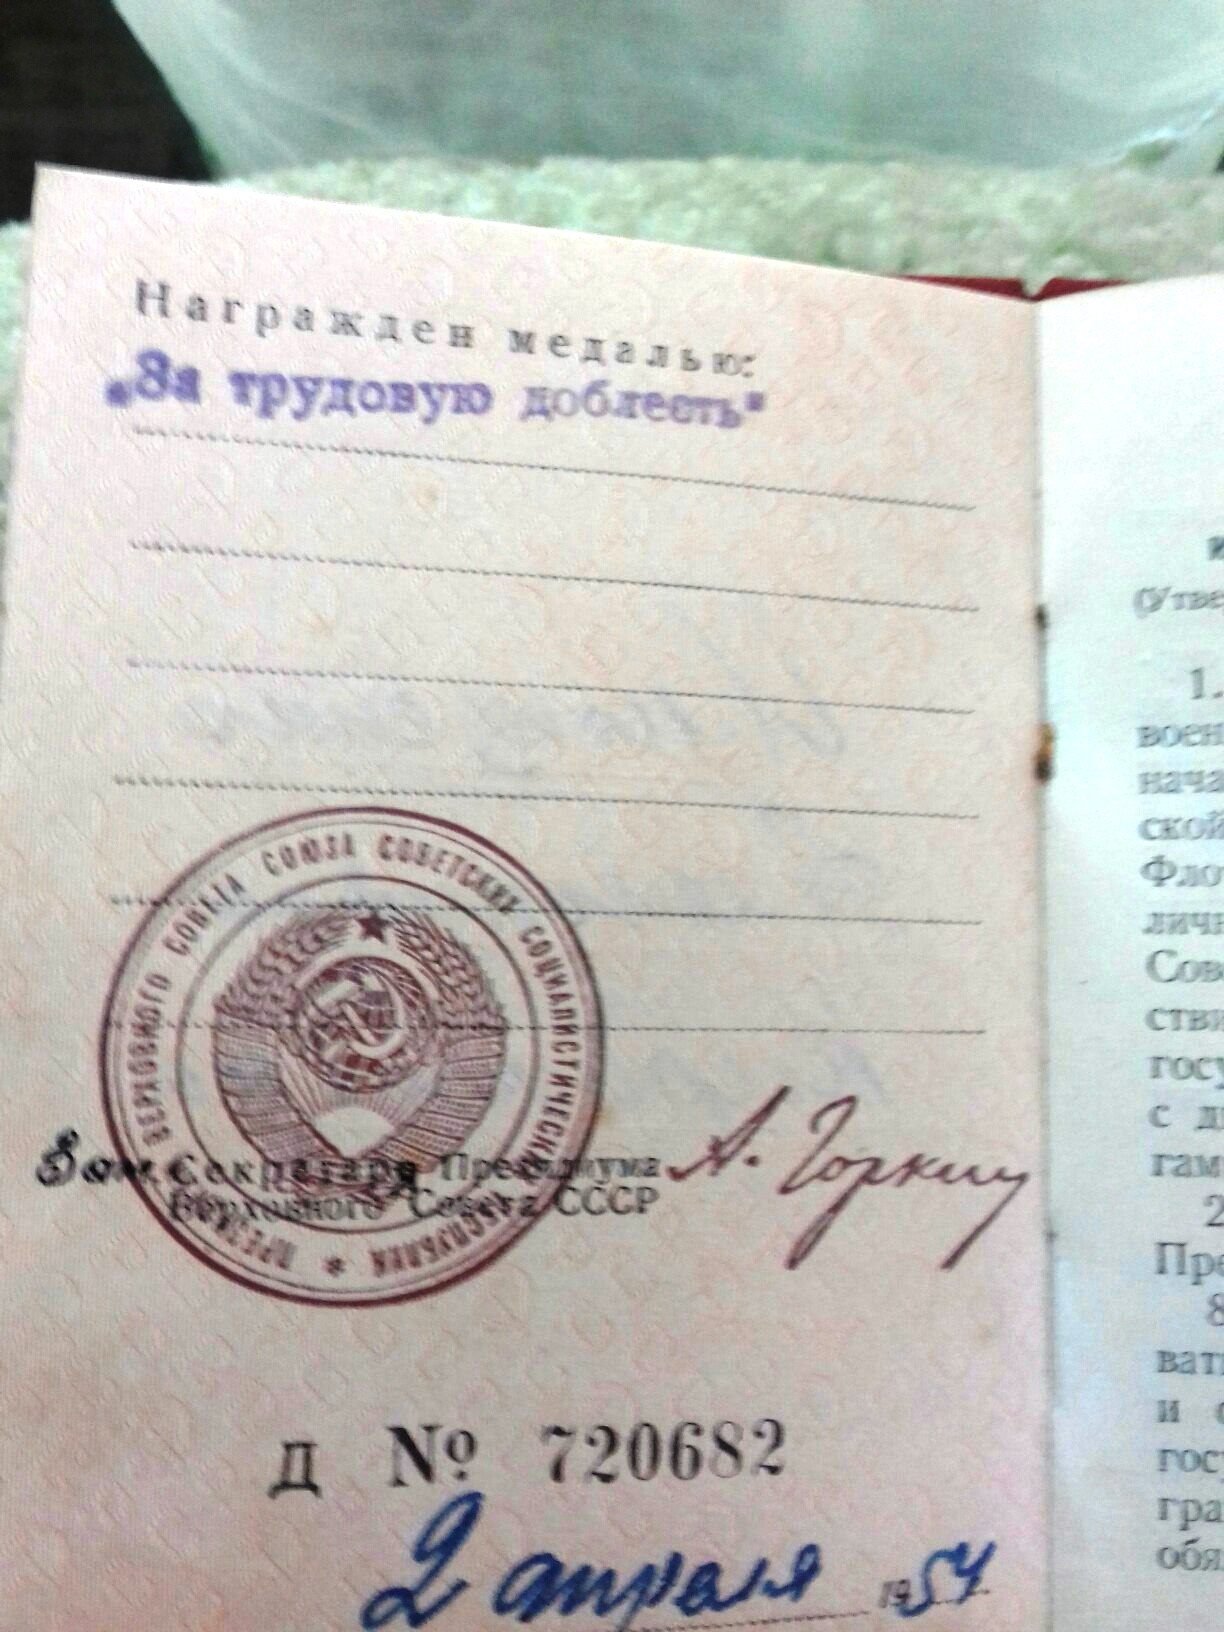 Награжден медалью:
„За трудовую доблесть"
ПРЕЗИДИУМ ВЕРХОВНОГО СОВЕТА СОЮЗА СОВЕТСКИХ СОЦИАЛИСТИЧЕСКИХ РЕСПУБЛИК *
Зам. Секретаря Президиума
Верховного Совета СССР
А. Горкин
Д № 720682
2 апреля 1954
(Утве
1.
воен
нача
ской
Фло
личн
Сов
стви
госу
с д
гам
2
Пре
8
вать
и с
гос
гра
обя